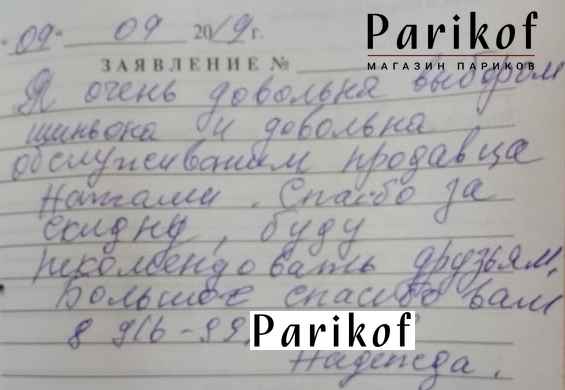 Parikof
МАГАЗИН ПАРИКОВ
"09" 09 2019 г.
ЗАЯВЛЕНИЕ №
Я очень довольна выбором
шиньона и довольна
обслуживанием продавца
Натами. Спасибо за
скидку, буду
рекомендовать друзьям.
Большое спасибо вам
8 916-99
Parikof
Надежда.